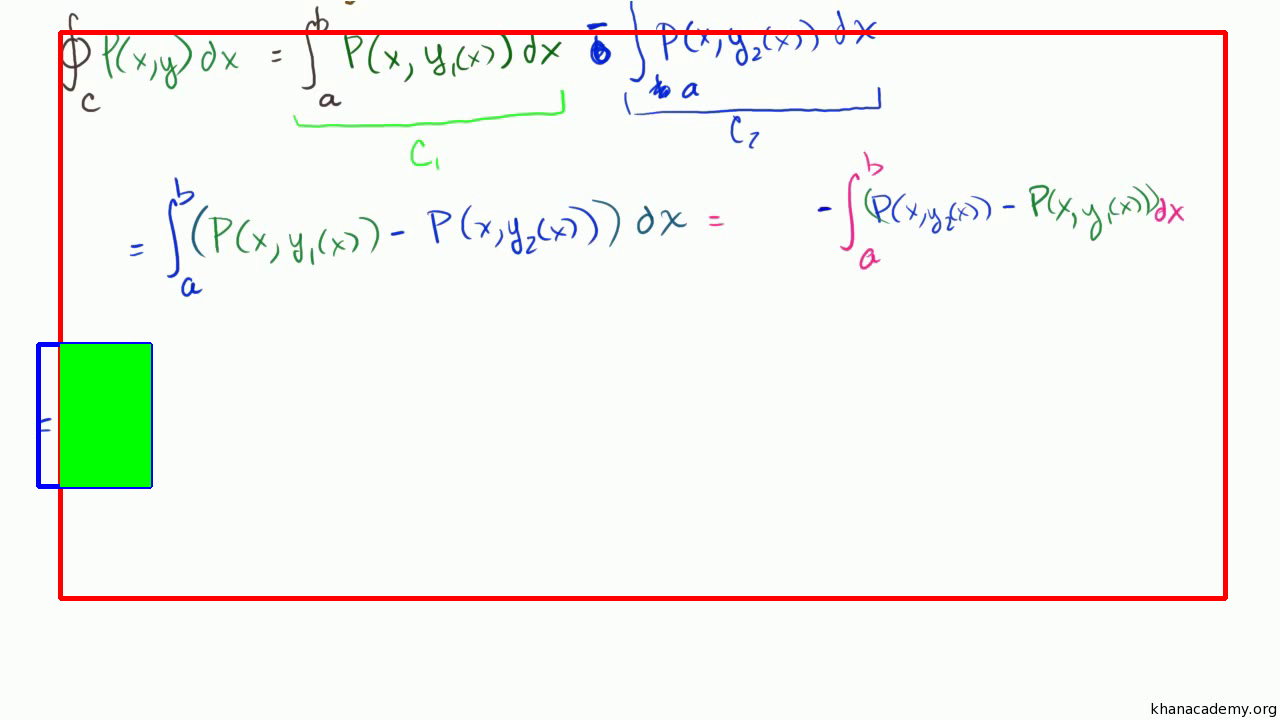 ∮_C P(x,y) dx = ∫_a^b P(x, y₁(x)) dx - ∫_a P(x, y₂(x)) dx
C₁ C₂
= ∫_a^b (P(x, y₁(x)) - P(x, y₂(x))) dx = - ∫_a^b (P(x, y₂(x)) - P(x, y₁(x))) dx
=
khanacademy.org